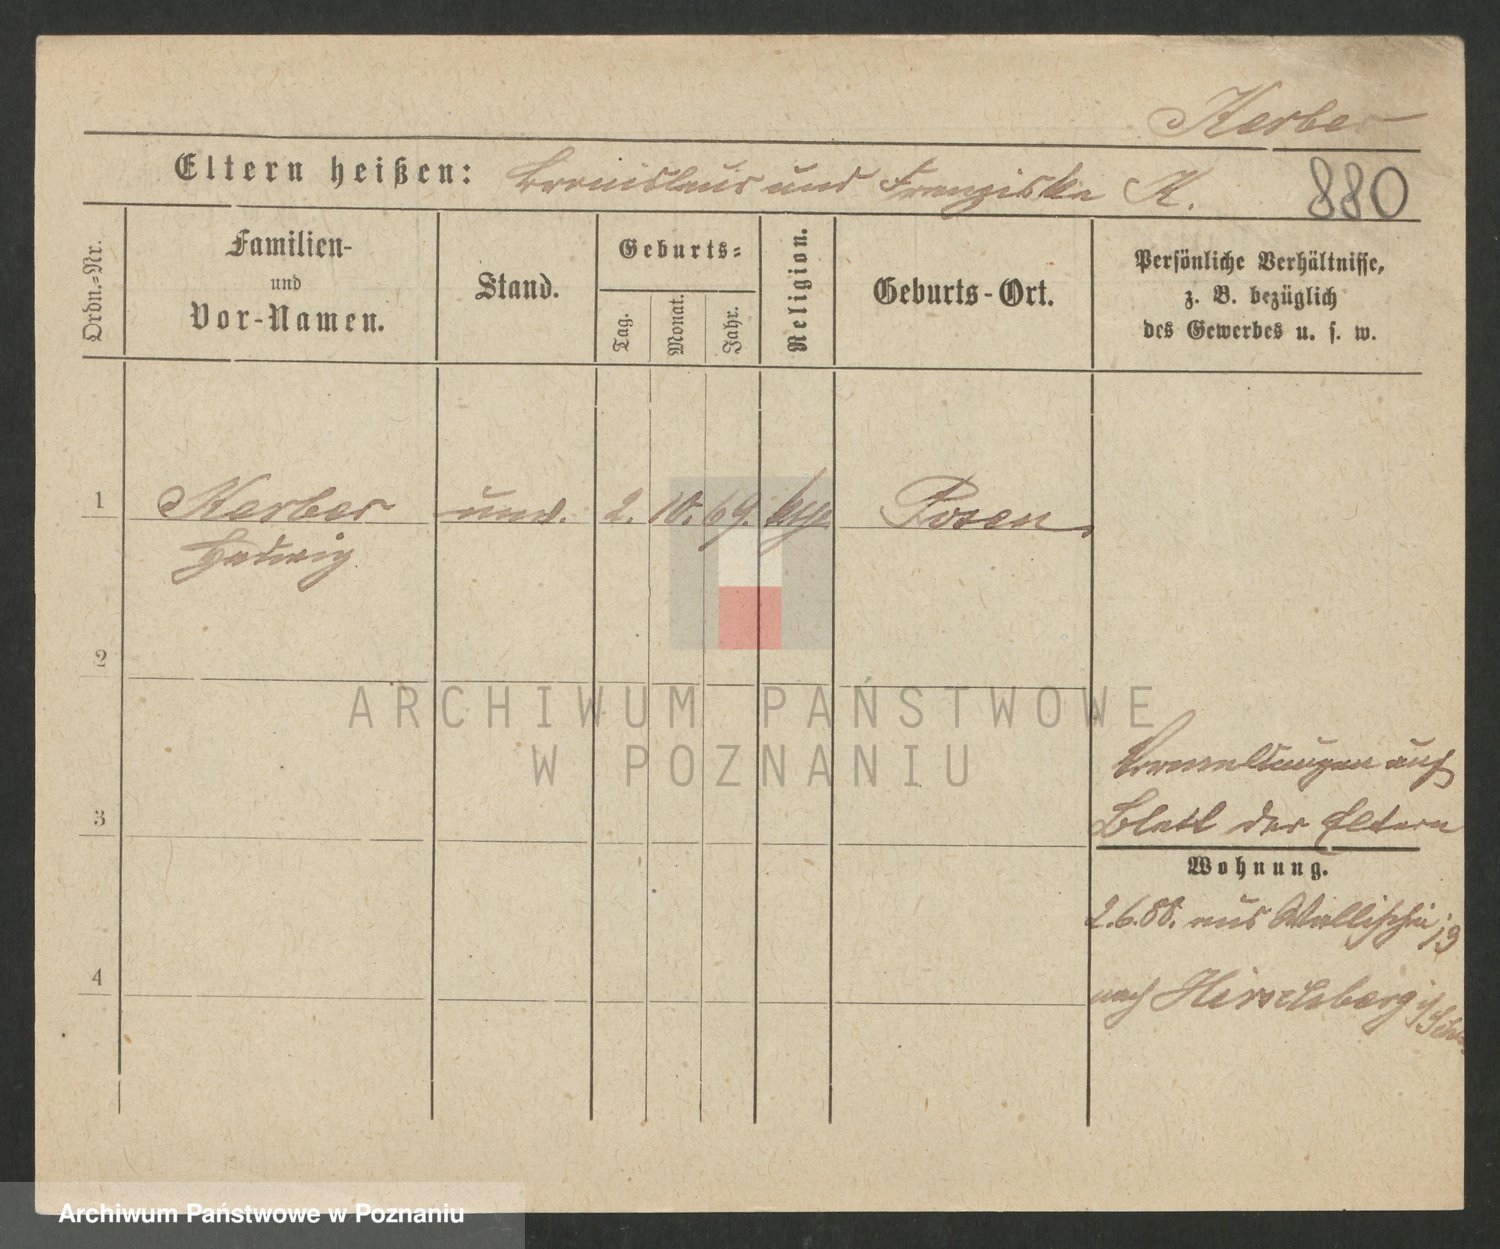 Kerber
Eltern heißen: Bronislaus und Franziska K.
880
Ordn.-Nr.
Familien-
und
Vor-Namen.
Stand.
Geburts-
Tag.
Monat.
Jahr.
Religion.
Geburts-Ort.
Persönliche Verhältnisse,
z. B. bezüglich
des Gewerbes u. s. w.
1 Kerber unv. 2. 10. 69. kth. Posen
Hedwig
2
ARCHIWUM PAŃSTWOWE
W POZNANIU
auf
3 Blatt der Eltern
Wohnung.
2.6.88. aus Wallischei
4 nach Hirschberg i/Schl.
Archiwum Państwowe w Poznaniu